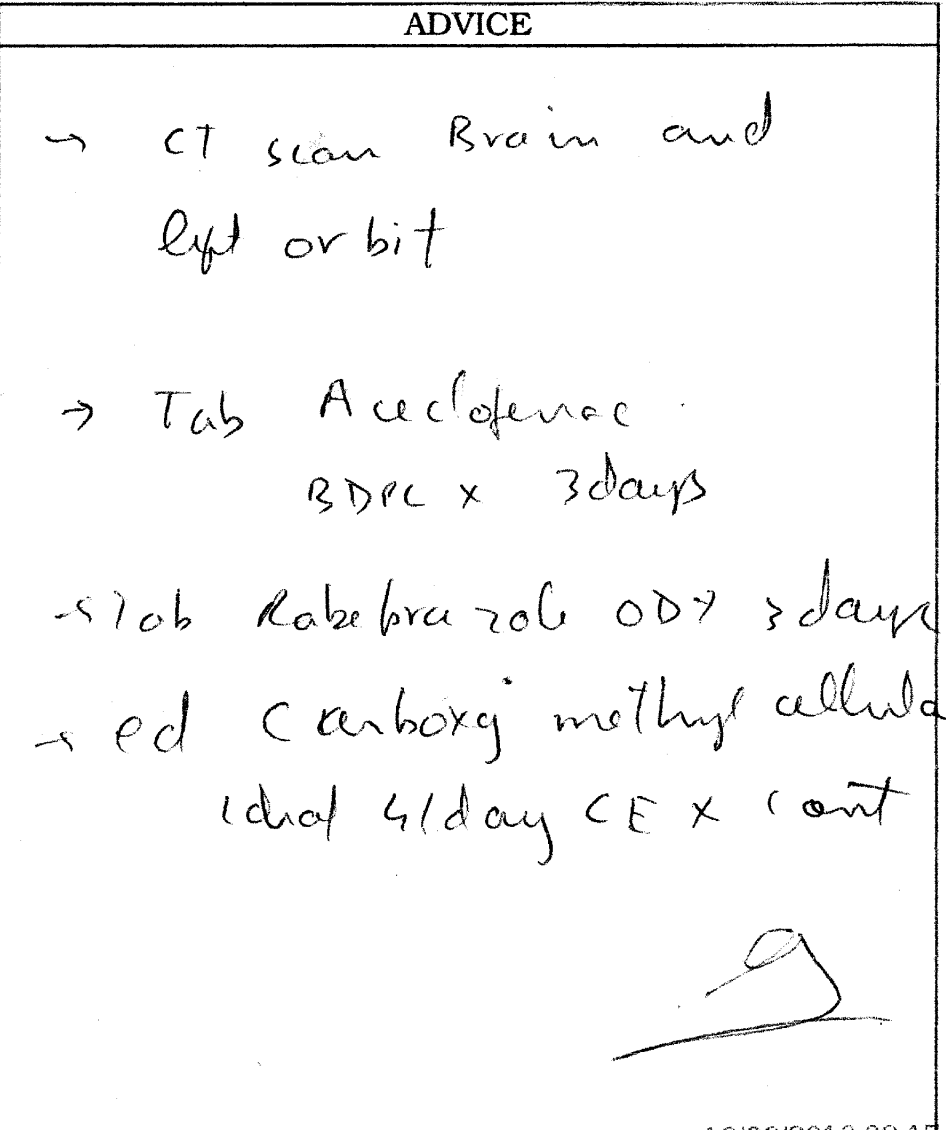 ADVICE
→ CT scan Brain and
left orbit
→ Tab Aceclofenac
BDPC x 3days
→ Tab Rabebrazole OD x 3days
→ ed Carboxy methyl cellula
1 4/day x